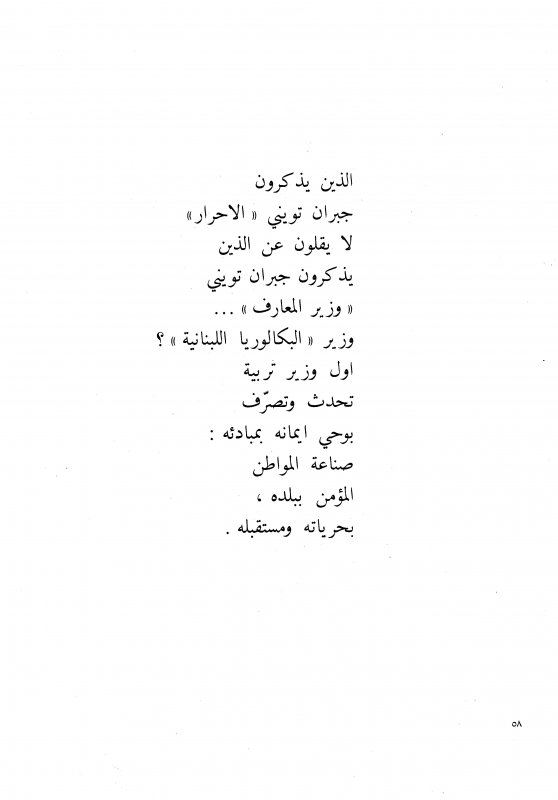 الذين يذكرون
جبران تويني « الاحرار»
لا يقلون عن الذين
يذكرون جبران تويني
« وزير المعارف » ...
وزير « البكالوريا اللبنانية » ؟
اول وزير تربية
تحدث وتصرّف
بوحي ايمانه بمبادئه :
صناعة المواطن
المؤمن ببلده ،
بحرياته ومستقبله .
٥٨